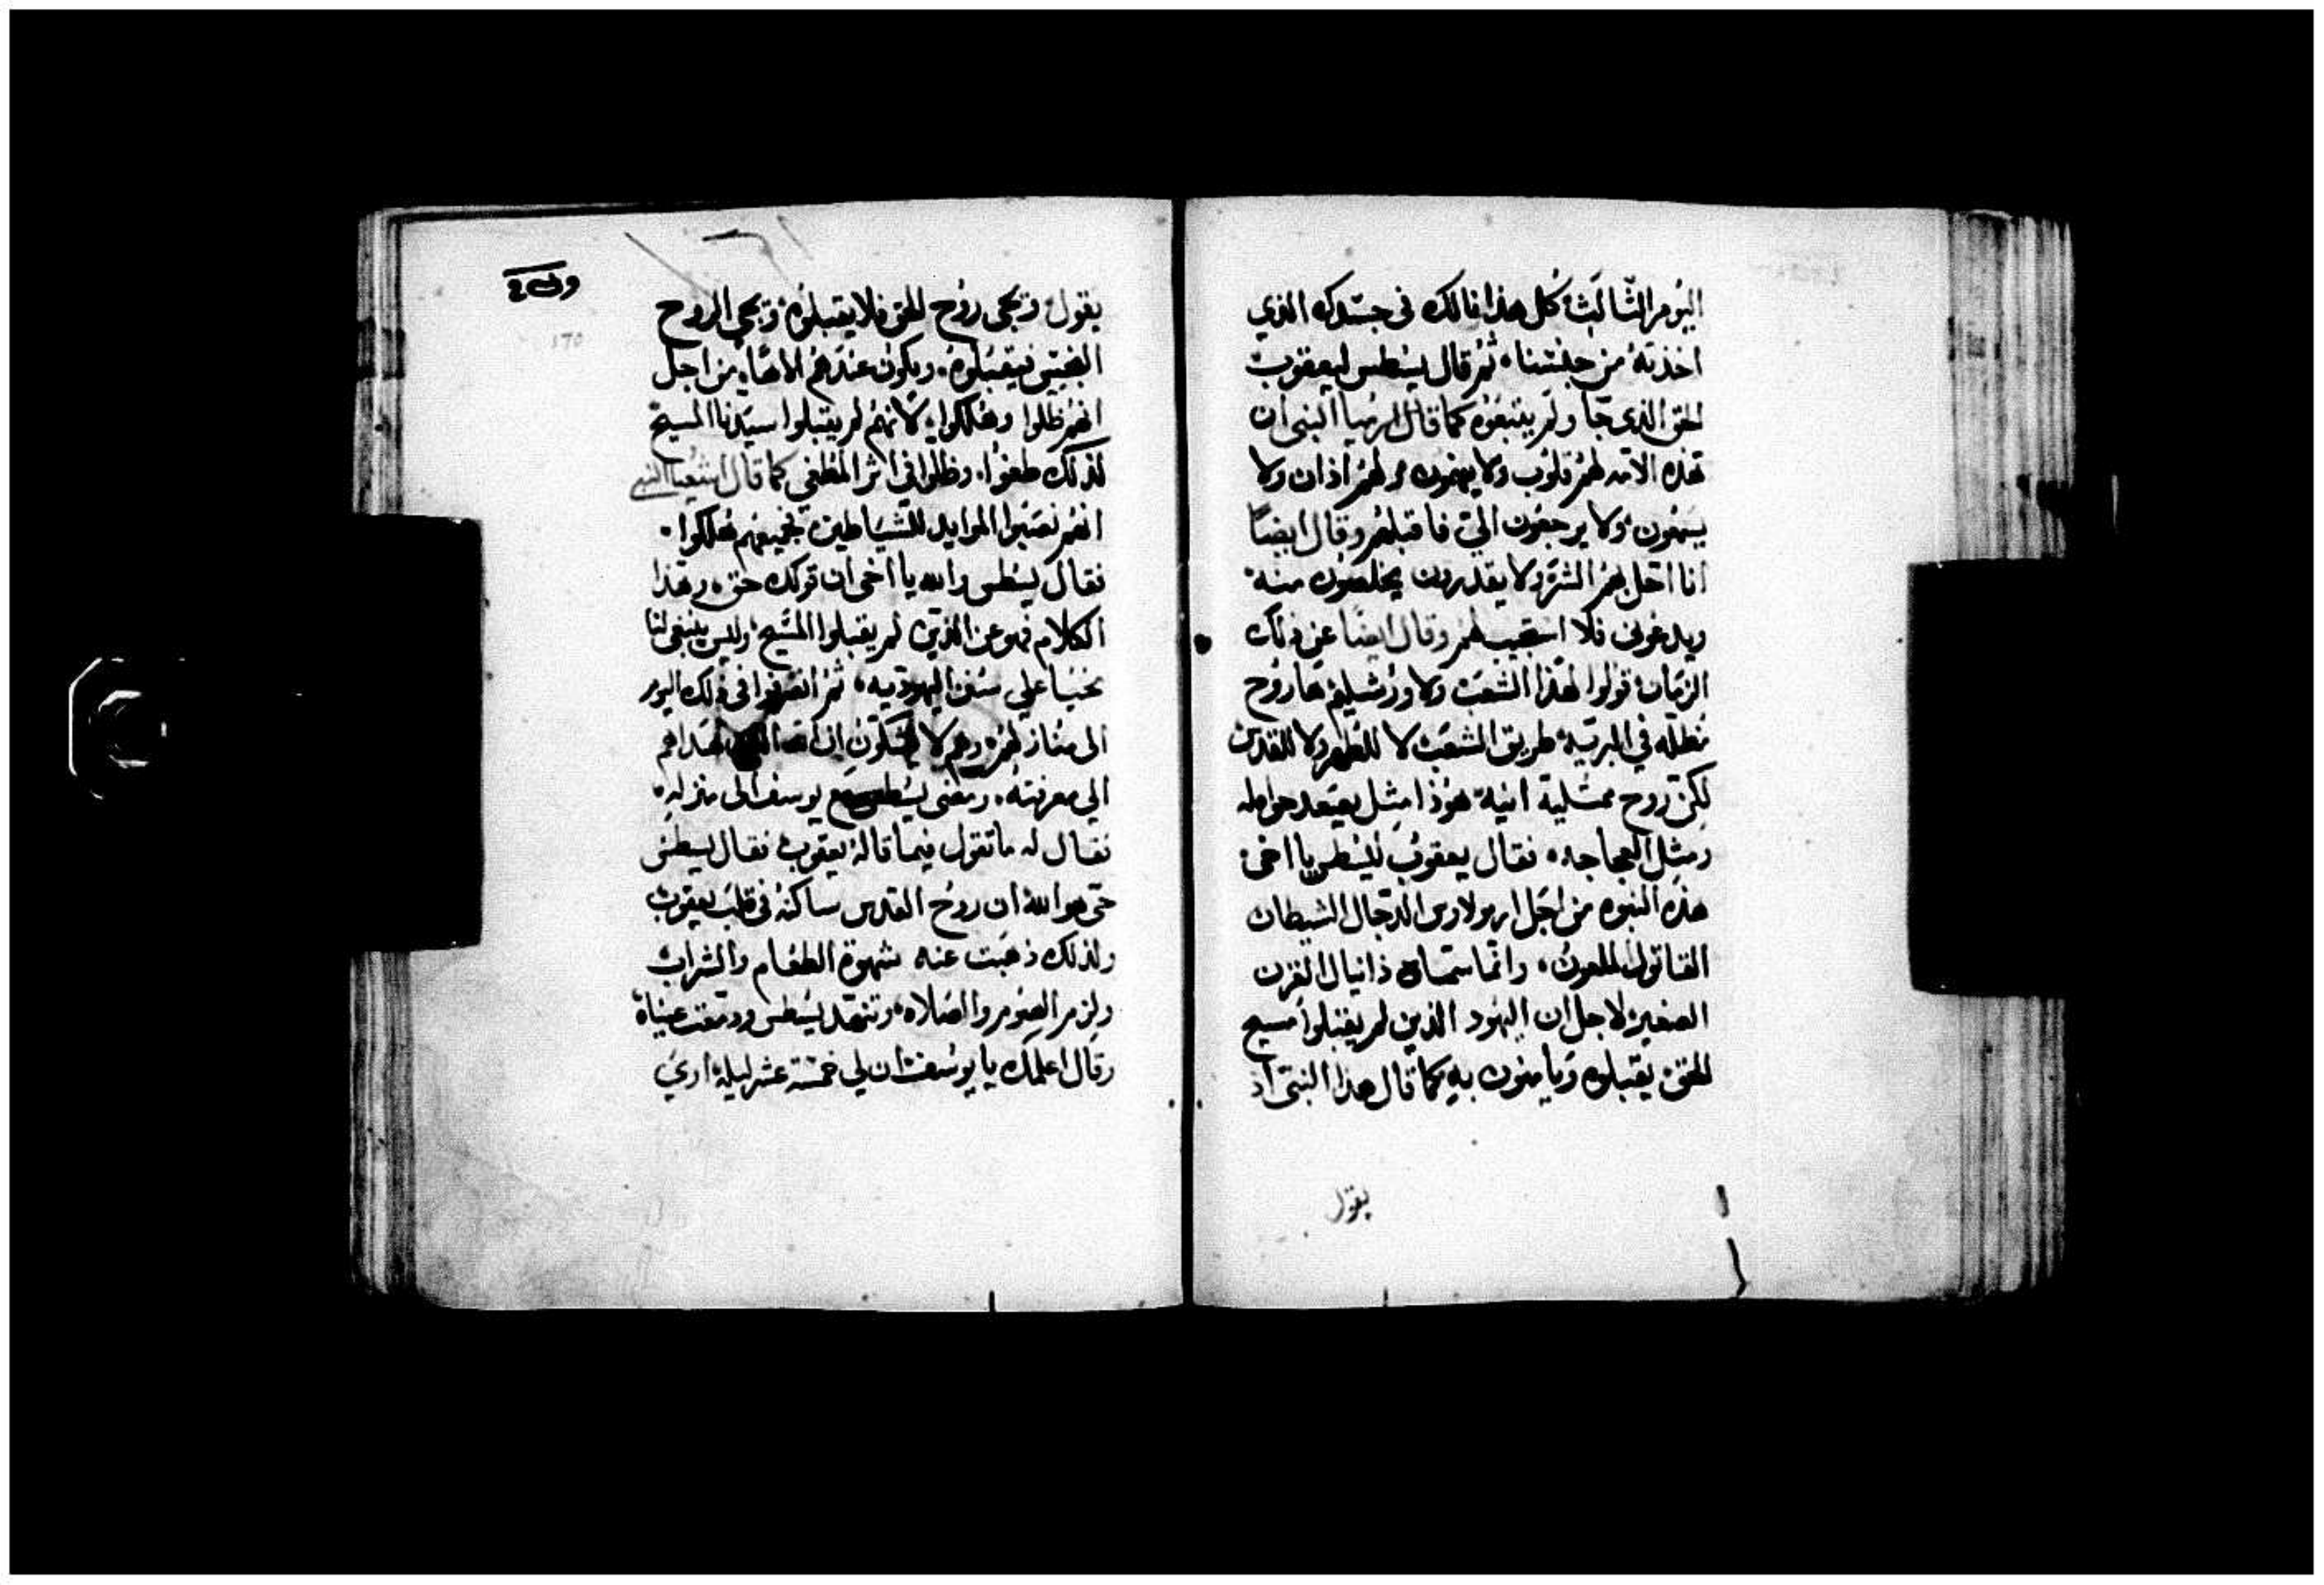 اليوم الثالث كل هذا نالك في جسدك الذي
اخذته من جنسنا، ثم قال يسطس ليعقوب
الحق الذي جا ولم يتبعوه كما قال ارميا النبي ان
هذه الامه لهم قلوب ولا يفهمون ولهم اذان ولا
يسمعون ولا يرجعون الي فاقبلهم وقال ايضا
انا احل بهم الشر ولا يقدرون يخلصون منه
ويدعوني فلا استجيب لهم وقال ايضا عن ذلك
الزمان قولوا لهذا الشعب ولاورشليم ها روح
مطله في البريه طريق الشعب لا للطهر ولا للقدس
لكن روح ممتلية اتيه هوذا مثل يصعد حوامله
ومثل العجاجه، فقال يعقوب ليسطس يا اخي
هذه النبوه من اجل ارمولاوس الدجال الشيطان
القاتول الملعون، وانما سماه دانيال القرن
الصغير لاجل ان اليهود الذين لم يقبلوا مسيح
الحق يقبلوه ويامنون به كما قال هذا النبي اذ
يقول
وى٤
170
يقول ويجي روح الحق فلا يقبلوه ويجي الروح
النجس فيقبلوه، ويكون عندهم الاها، من اجل
انهم ظلوا وهلكوا، لانهم لم يقبلوا سيدنا المسيح
لذلك طغوا، وظلوا في اثر المطغي كما قال اشعيا النبي
انهم نصبوا الموايد للشياطين فجميعهم هلكوا.
فقال يسطس والله يا اخي ان قولك حق، وهذا
الكلام فهو عن الذين لم يقبلوا المسيح، وليس ينبغي لنا
نحيا علي سنن اليهوديه، ثم انصرفوا في ذلك اليوم
الى منازلهم، وهم لا يشكون ان الله هداهم
الي معرفته، ومضى يسطس مع يوسف الى منزله،
فقال له ما تقول فيما قاله يعقوب فقال يسطس
حق هو الله ان روح القدس ساكنه في قلب يعقوب
ولذلك ذهبت عنه شهوة الطعام والشراب
ولزم الصوم والصلاه، وتنهد يسطس ودمعت عيناه
وقال اعلمك يا يوسف ان لي خمسة عشر ليله اري